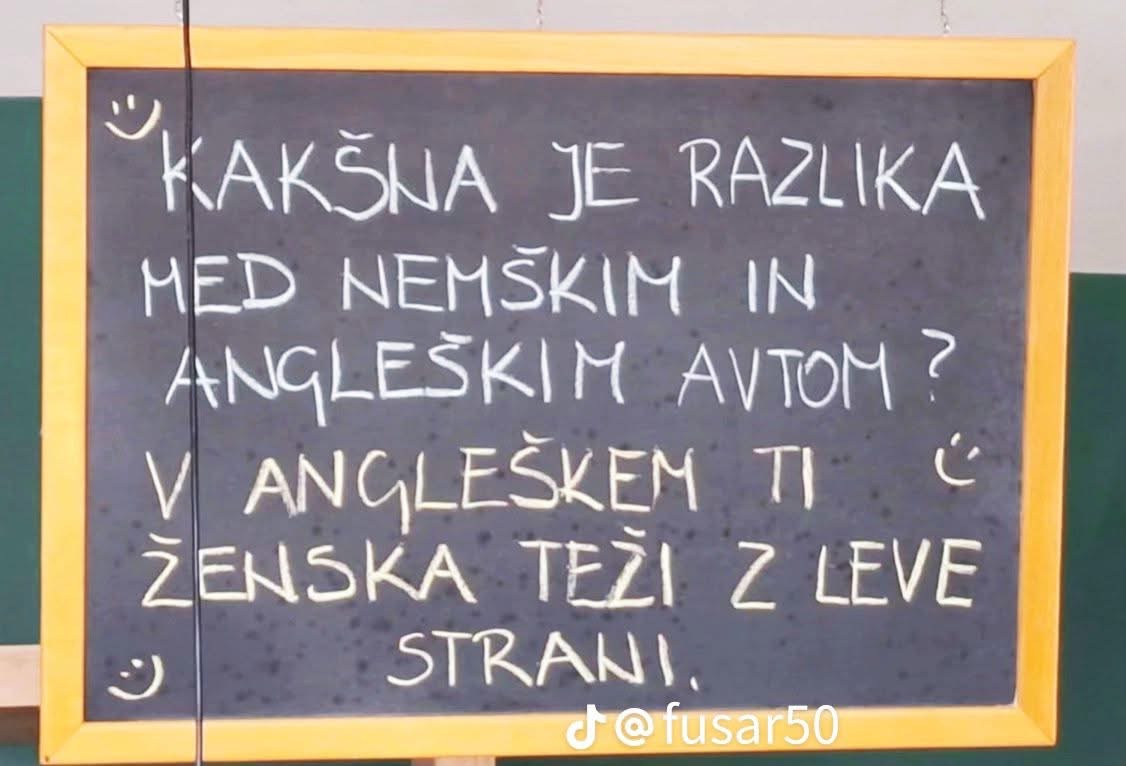 KAKŠNA JE RAZLIKA
MED NEMŠKIM IN
ANGLEŠKIM AVTOM?
V ANGLEŠKEM TI
ŽENSKA TEŽI Z LEVE
STRANI.
@fusar50